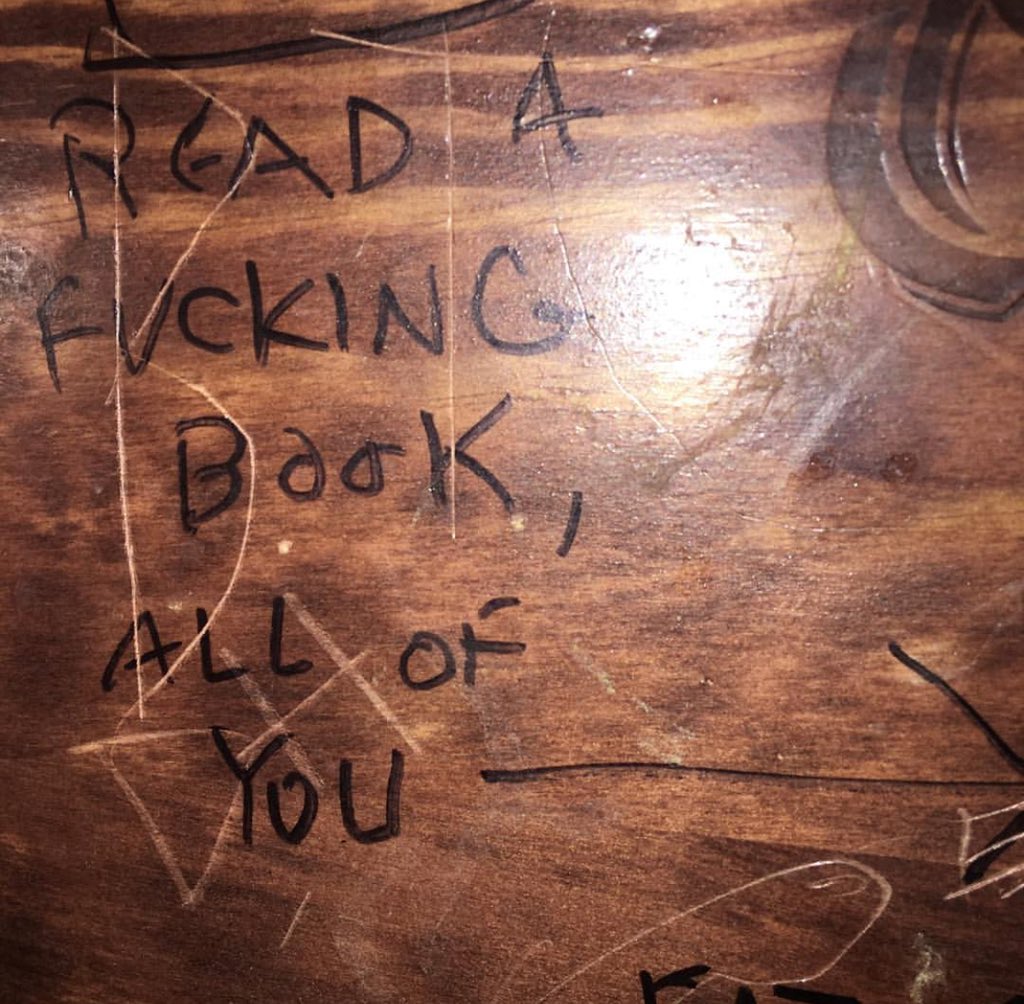 READ A
FUCKING
BOOK,
ALL OF
YOU